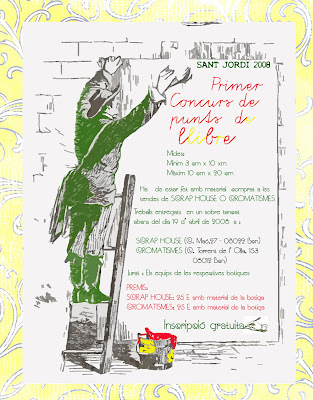 SANT JORDI 2008
Primer
Concurs de
punts de
llibre
Mides:
Mínim 3 cm x 10 xm
Màxim 10 cm x 20 cm
Ha de estar fet amb material comprat a les
tendes de SCRAP HOUSE O CROMATISMES
Treballs entregats en un sobre tancat
abans del dia 19 d' abril de 2008 a :
SCRAP HOUSE (C. 08022 Bcn)
CROMATISMES (C. Torrent de l' Olla, 153
08012 Bcn)
Jurat : Els equips de les respectives botigues
PREMIS:
SCRAP HOUSE: 25 E amb material de la botiga
CROMATISMES: 25 E amb material de la botiga
Inscripció gratuita